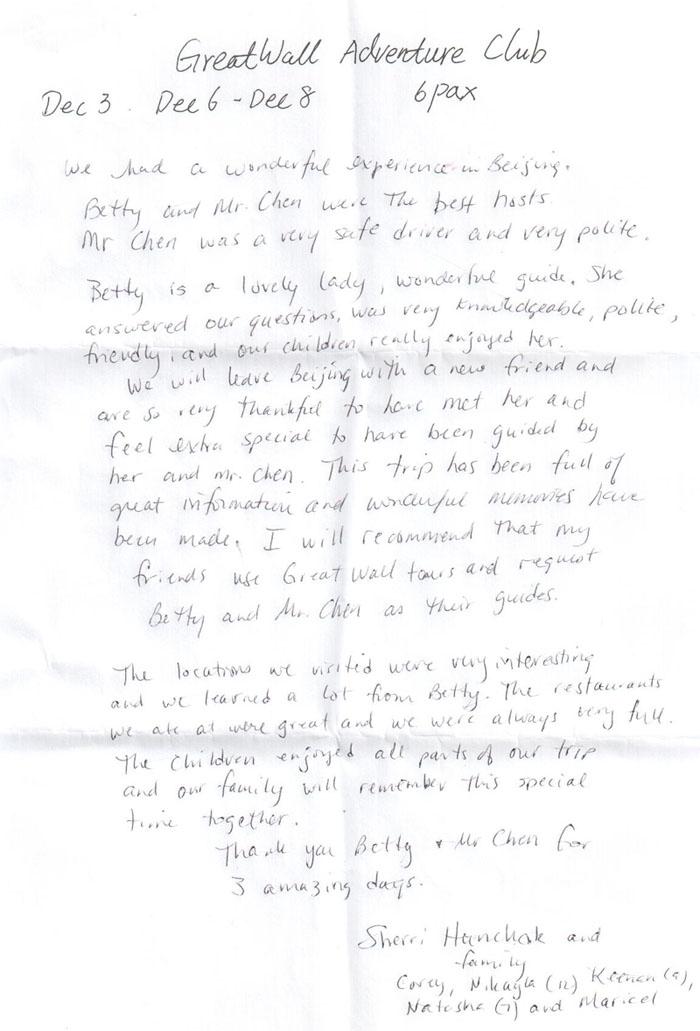 GreatWall Adventure Club
Dec 3 . Dec 6 - Dec 8 6pax
We had a wonderful experience in Beijing.
Betty and Mr. Chen were the best hosts.
Mr Chen was a very safe driver and very polite.
Betty is a lovely lady, wonderful guide. She
answered our questions, was very knowledgeable, polite,
friendly, and our children really enjoyed her.
We will leave Beijing with a new friend and
are so very thankful to have met her and
feel extra special to have been guided by
her and Mr. Chen. This trip has been full of
great information and wonderful memories have
been made. I will recommend that my
friends use Great Wall tours and request
Betty and Mr. Chen as their guides.
The locations we visited were very interesting
and we learned a lot from Betty. The restaurants
we ate at were great and we were always very full.
The children enjoyed all parts of our trip
and our family will remember this special
time together.
Thank you Betty & Mr Chen for
3 amazing days.
Sherri Hanchak and
family
Corey, Nikayla (12) Keenan (9),
Natasha (7) and Maricel